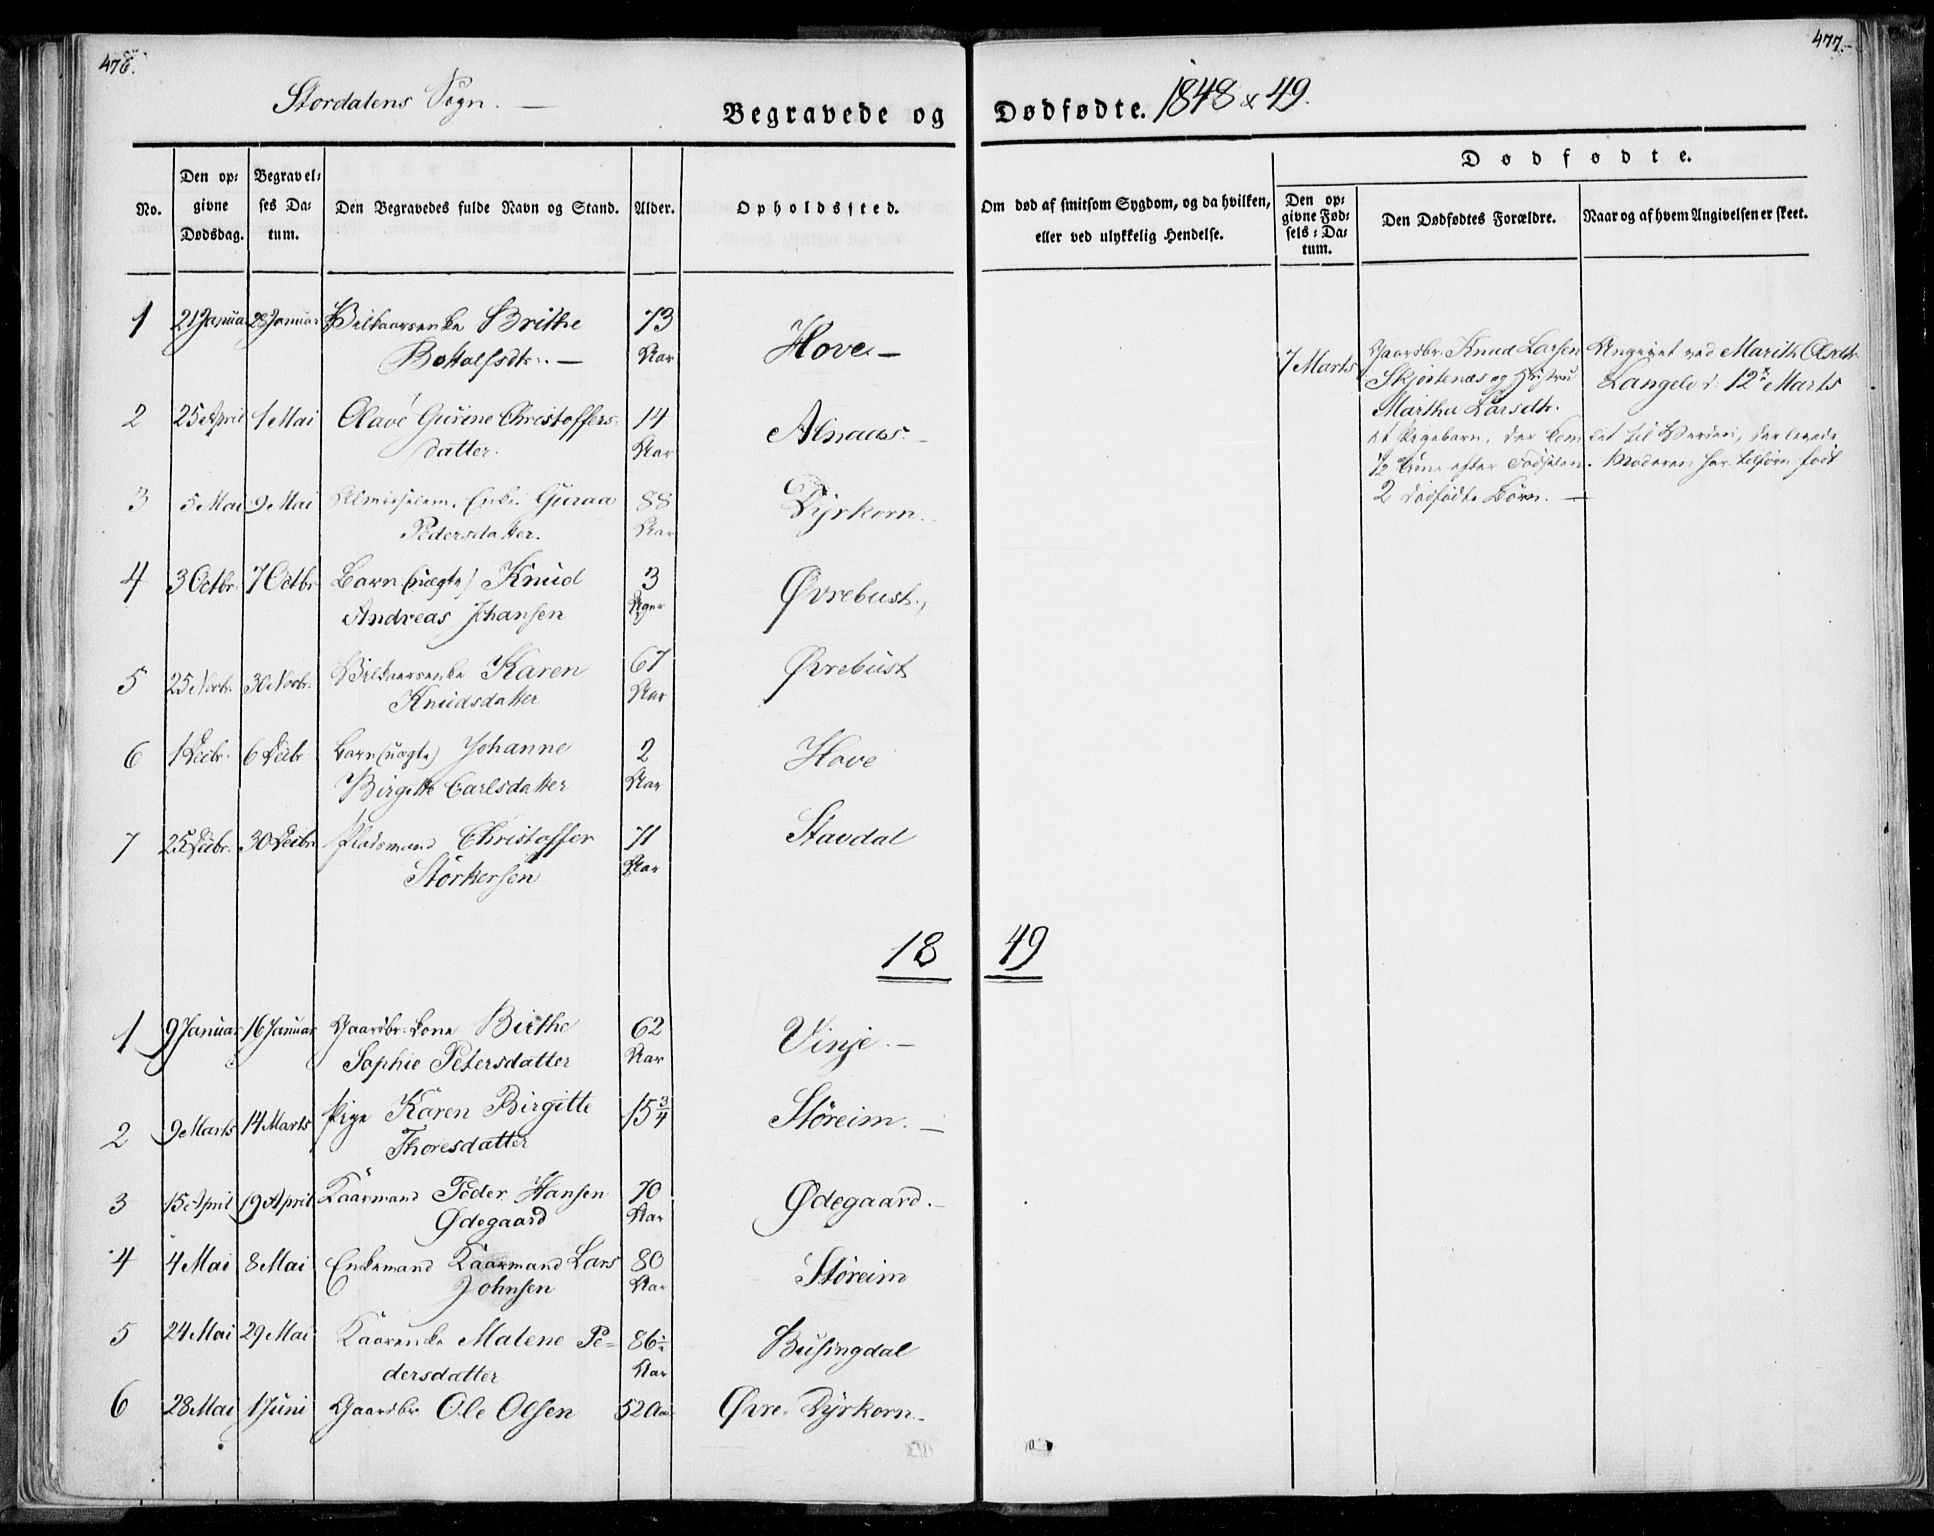 476.
477.
Stordalens Sogn. —
Begravede og Dødfødte. 1848 & 49.
No.
Den opgivne Dødsdag.
Begravelses Datum.
Den Begravedes fulde Navn og Stand.
Alder.
Opholdssted.
Om død af smitsom Sygdom, og da hvilken, eller ved ulykkelig Hendelse.
Dødfødte.
Den opgivne Fødsels-Datum.
Den Dødfødtes Forældre.
Naar og af hvem Angivelsen er skeet.
1 21 Januar 28 Januar Vilkaarsenke Brithe 73
Bottolfsdtr. — Aar Hove —
2 25 April 1 Mai Olave Gurine Christoffers- 14
datter. Aar Alnaas. —
3 5 Mai 9 Mai Almisselem. Enke Guraa 88
Pedersdatter. Aar Dyrkorn.
4 3 Octbr. 7 Octbr Barn (uægte) Knud 3
Andreas Johansen Uger Øvrebust.
5 25 Novbr. 30 Novbr. Vilkaarsenke Karen 67
Knudsdatter Aar Øvrebust
6 1 Decbr. 6 Decbr Barn (uægte) Johanne 2
Birgitte Carlsdatter Aar Hove
7 25 Decbr. 30 Decbr. Pladsmand Christoffer 71
Størkersen Aar Stavdal
7 Marts Gaardbr. Knud Larsen Angivet ved Marith Olsdtr.
Skjortenæs og Hustru Langelo d: 12te Marts
Martha Larsdtr.
et Pigebarn, der kom let til Verden, der levede
1/2 Time efter Fødselen. Moderen har tilforn født
2 dødfødte Børn. —
1849
1 9 Januar 16 Januar Gaardbr. Kone Birthe 62
Sophie Petersdatter Aar Vinje. —
2 9 Marts 14 Marts Pige Karen Birgitte 15 3/4
Thoresdatter Støreim. —
3 15 April 19 April Kaarmand Peder Hansen 70
Ødegaard Aar Ødegaard. —
4 4 Mai 8 Mai Enkemand Kaarmand Lars 80
Johnsen Aar Støreim
5 24 Mai 29 Mai Kaarenke Malene Pe- 86 1/2
dersdatter Aar Busingdal
6 28 Mai 1 Juni Gaardbr Ole Olsen 52 Aar Øvre-Dyrkorn. —